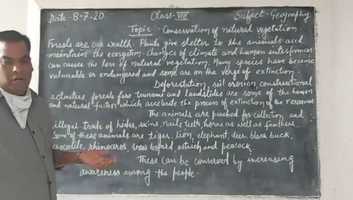 Date 8-7-20 Class-VIII Subject-Geography
Topic - Conservation of natural vegetation
Forests are our wealth. Plants give shelter to the animals and
maintains the ecosystem. changes of climate and human interferences
can causes the loss of natural vegetation. Many species have become
vulnerable or endangered and some are on the verge of extinction.
Deforestation, soil erosion, constructional
activities forests fire tsunami and landslides are some of the human
and natural factors which accelerate the process of extinction of the resources
The animals are poached for collection and
illegal trade of hides, skins nails teeth horns as well as feathers
Some of these animals are tiger, lion, elephant, deer, black buck,
crocodile, rhinoceros, snow leopard ostrich and peacock.
These Can be Conserved by increasing
awareness among the people.